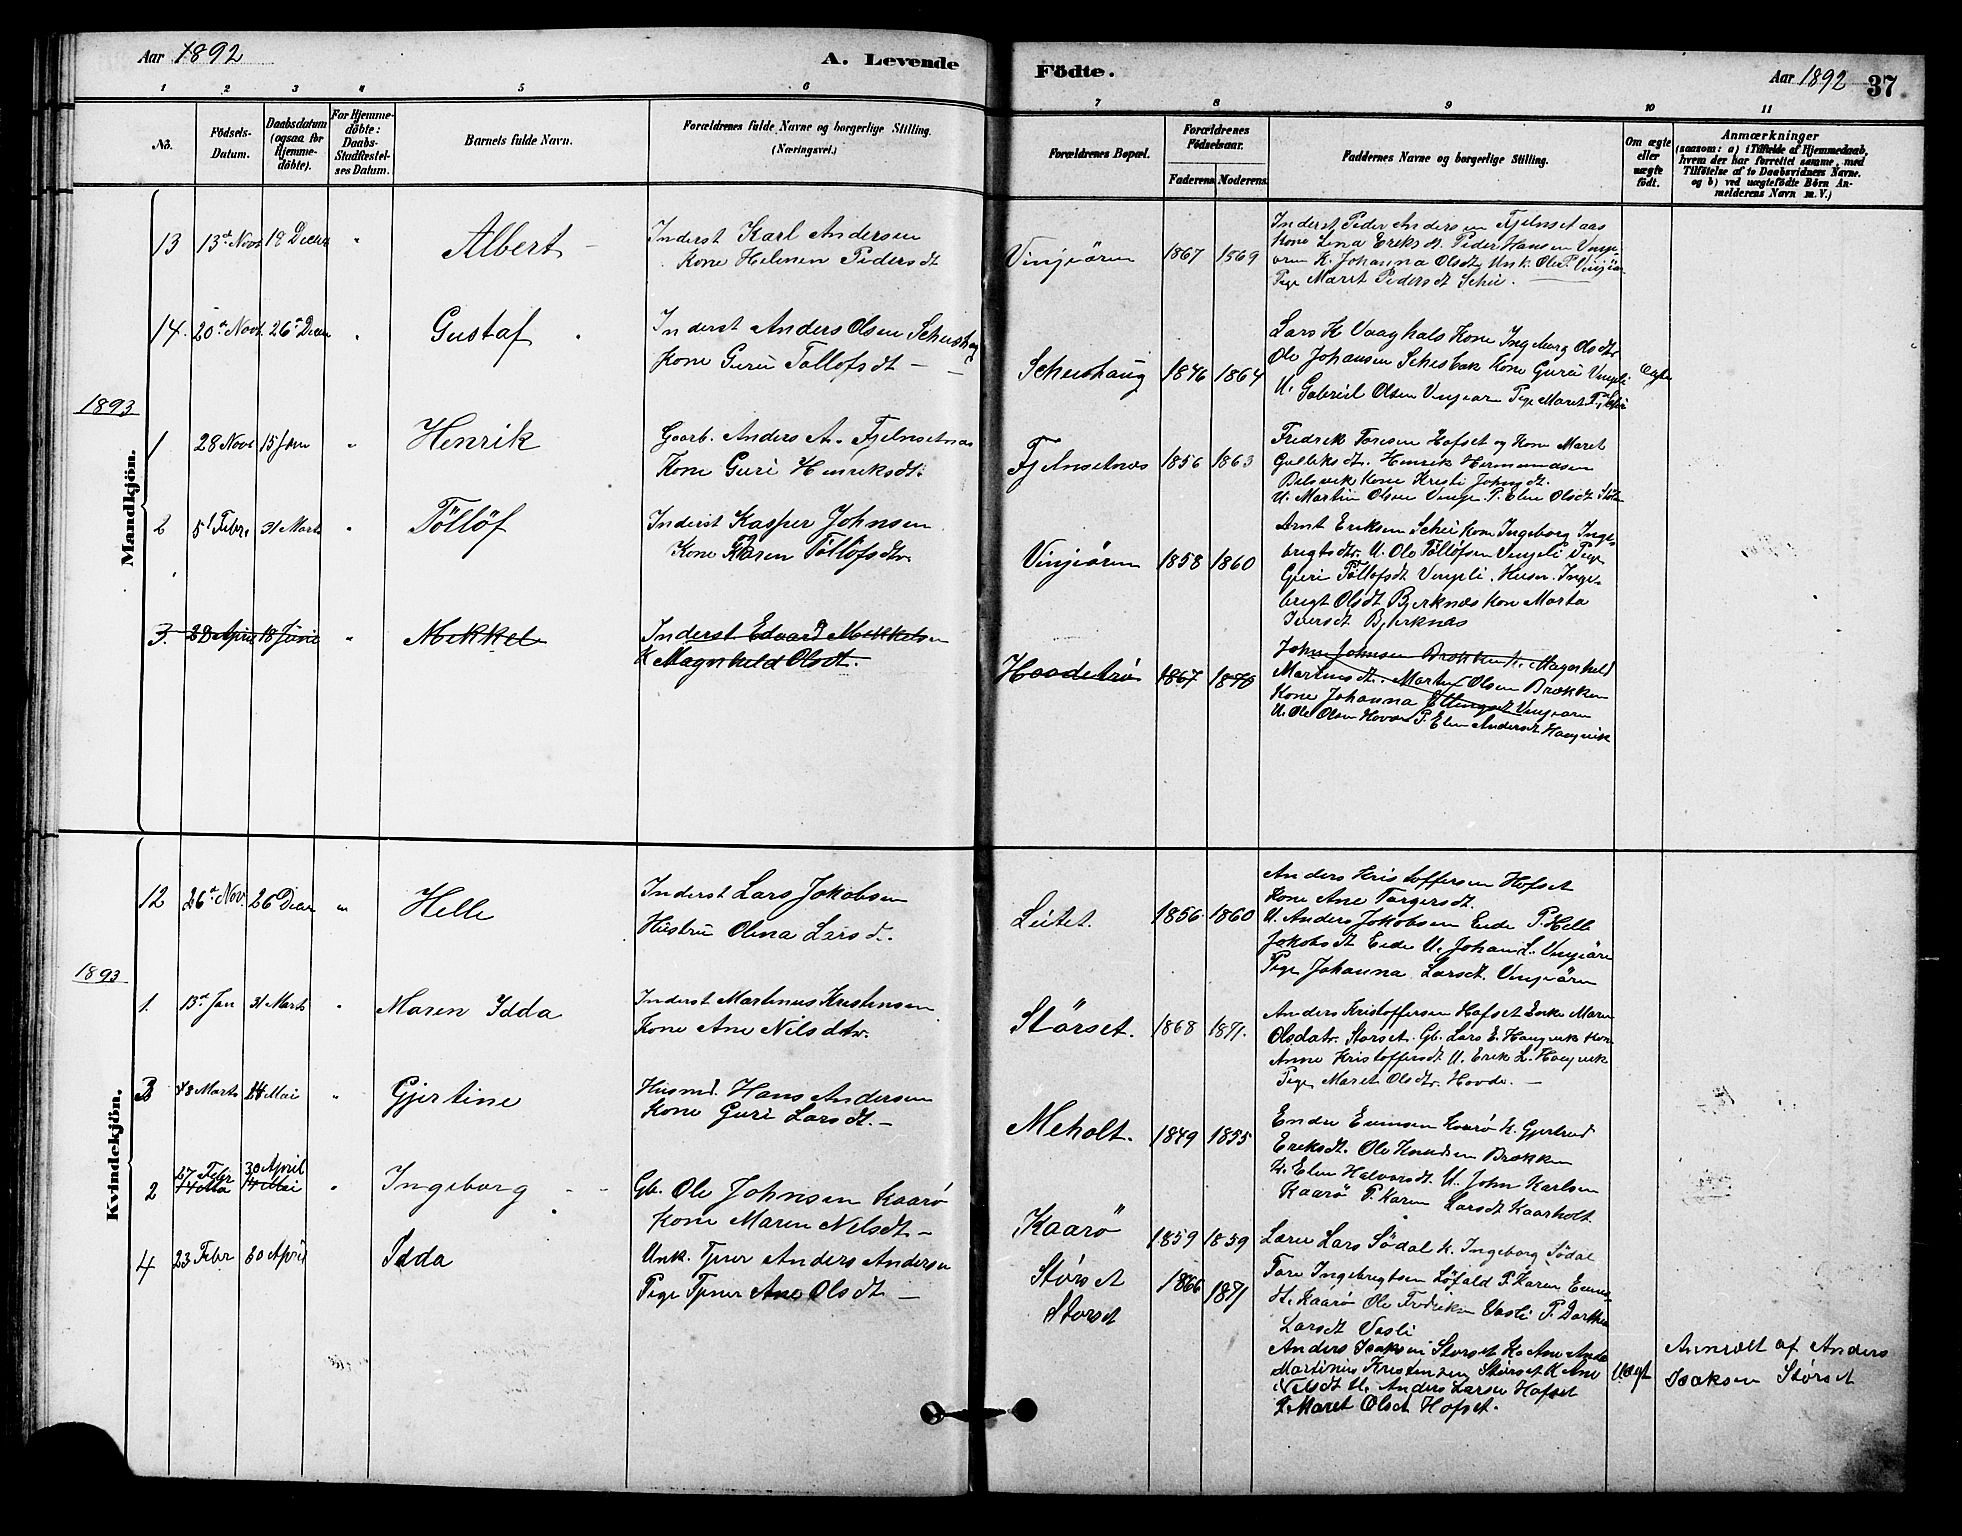 Aar 1892
A. Levende
Födte.
Aar 1892 37
1 2 3 4 5 6 7 8 9 10 11
No.
Födsels-
Datum.
Daabsdatum
(ogsaa for
Hjemme-
döbte).
For Hjemme-
döbte:
Daabs-
Stadfæstel-
ses Datum.
Barnets fulde Navn.
Forældrenes fulde Navne og borgerlige Stilling.
(Næringsvei.)
Forældrenes Bopæl.
Forældrenes
Födselsaar.
Faderens. Moderens.
Faddernes Navne og borgerlige Stilling.
Om ægte
eller
uægte
födt.
Anmærkninger
(saasom: a) i Tilfælde af Hjemmedaab,
hvem der har forrettet samme, med
Tilföielse af to Daabsvidners Navne.
og b) ved uægtefödte Börn An-
melderens Navn m.V.)
Mandkjön.
13 13de Novb 18 Decbr " Albert
Inderst Karl Andersen
Kone Helenen Pedersdt
Vinjeören 1867 1569
Inderst Peder Andersen Fjelnsetaas
Kone Lina Eriksdt. Peder Hansen Vinje-
ören K. Johanna Olsdt Unk. Ole P. Vinjeören
Pige Maret Pedersdt Schei.
14. 20de Novb. 26de Decbr " Gustaf
Inderst Anders Olsen Scheishaug
Kone Guru Tollofsdt
Scheishaug 1846 1864
Lars K Vaaghals Kone Ingeborg Olsdtr
Ole Johansen Scheisbak Kone Guru Vinjeli
U. Gabriel Olsen Vinjeören Pige Maret P. Schei
ægte
1893
1 28 Novb 15 Jan " Henrik
Gaarb. Anders A. Fjelnsetnæs
Kone Guri Henriksdt.
Fjelnsetnæs 1856 1863
Fredrik Toresen Hofset og Kone Maret
Gulliksdt. Henrik Hermundsen
Belsvik Kone Kristi Johnsdt.
U. Martin Olsen Vinje P. Elen Olsdt
2 5t Febr. 31 Marts " Töllöf
Inderst Kasper Johnsen
Kone Karen Töllöfsdtr.
Vinjeören 1858 1860
Arnt Eriksen Schei Kone Ingeborg Inge-
brigtsdtr. U. Ole Töllöfsen Vinjeli Pige
Guri Töllofsdt Vinjeli. Husm. Inge-
brigt Olsdt Bjerknæs Kone Marta
Iversdt Bjerknæs
3. 28 April 18 Juni " Mikkel
Inderst Edvard Mikkelsen
K Magnhild Olsdt.
Hoodetrø 1867 1870
John Johnsen Brøkken K. Magnhild
Martinsdt. Martin Olsen Brøkken
Kone Johanna Ellingsdt Vinjeören
U. Ole Olsen Hovde P. Elen Andersdt Haugvik
Kvindekjön.
12 26de Nov. 26 Decbr " Helle
Inderst Lars Jakobsen
Hustru Olena Larsd.
Leitet. 1856 1860
Anders Kristoffersen Hofset
Kone Ane Torgersdt.
U. Anders Jakobsen Eide P. Helle
Jakobsdt Eide U. Johan L. Vinjeören
Pige Johanna Larsdt. Vinjeören
1893
1. 13de Jan 31 Marts " Maren Idda
Inderst Martinus Kristensen
Kone Ane Nilsdtr.
Størset. 1868 1871.
Anders Kristoffersen Hofset Enke Maren
Olsdatr. Størset. Gb. Lars E. Haugvik Kone
Anne Kristoffersdt U. Erik L. Haugvik
Pige Maret Olsdtr. Hovde.
3 18 Marts 14 Mai " Gjertine
Husmd. Hans Andersen
Kone Guri Larsdt.
Meholt. 1849 1855
Endre Evensen Kaarø K. Gjertrud
Eriksdt. Ole Knudsen Brøkken
K. Elen Halvorsdt U. John Karlsen
Kaarø P. Karen Larsdt Kaarholt.
2 17 Febr 30 April " Ingeborg
Gb. Ole Johnsen Kaarø
Kone Maren Nilsdt
Kaarø 1859 1859
Lærer Lars Södal K. Ingeborg Södal
Tore Ingebrigtsen Löfald P. Karen Evens-
dt. Kaarø Ole Fredriksen Vasli P. Dorthea
Larsdt Vasli
4 23 Febr 30 April Idda
Unk. Tjener Anders Andersen
Pige Tjener Ane Olsdt
Størset
Størset
1866 1871
Anders Isaksen Størset K. Ane Ands
Martinus Kristensen Størset K Ane
Nilsdt U. Anders Larsen Hofset
P. Maret Olsdt Hofset.
Uægt
Anmeldt af Anders
Isaksen Størset